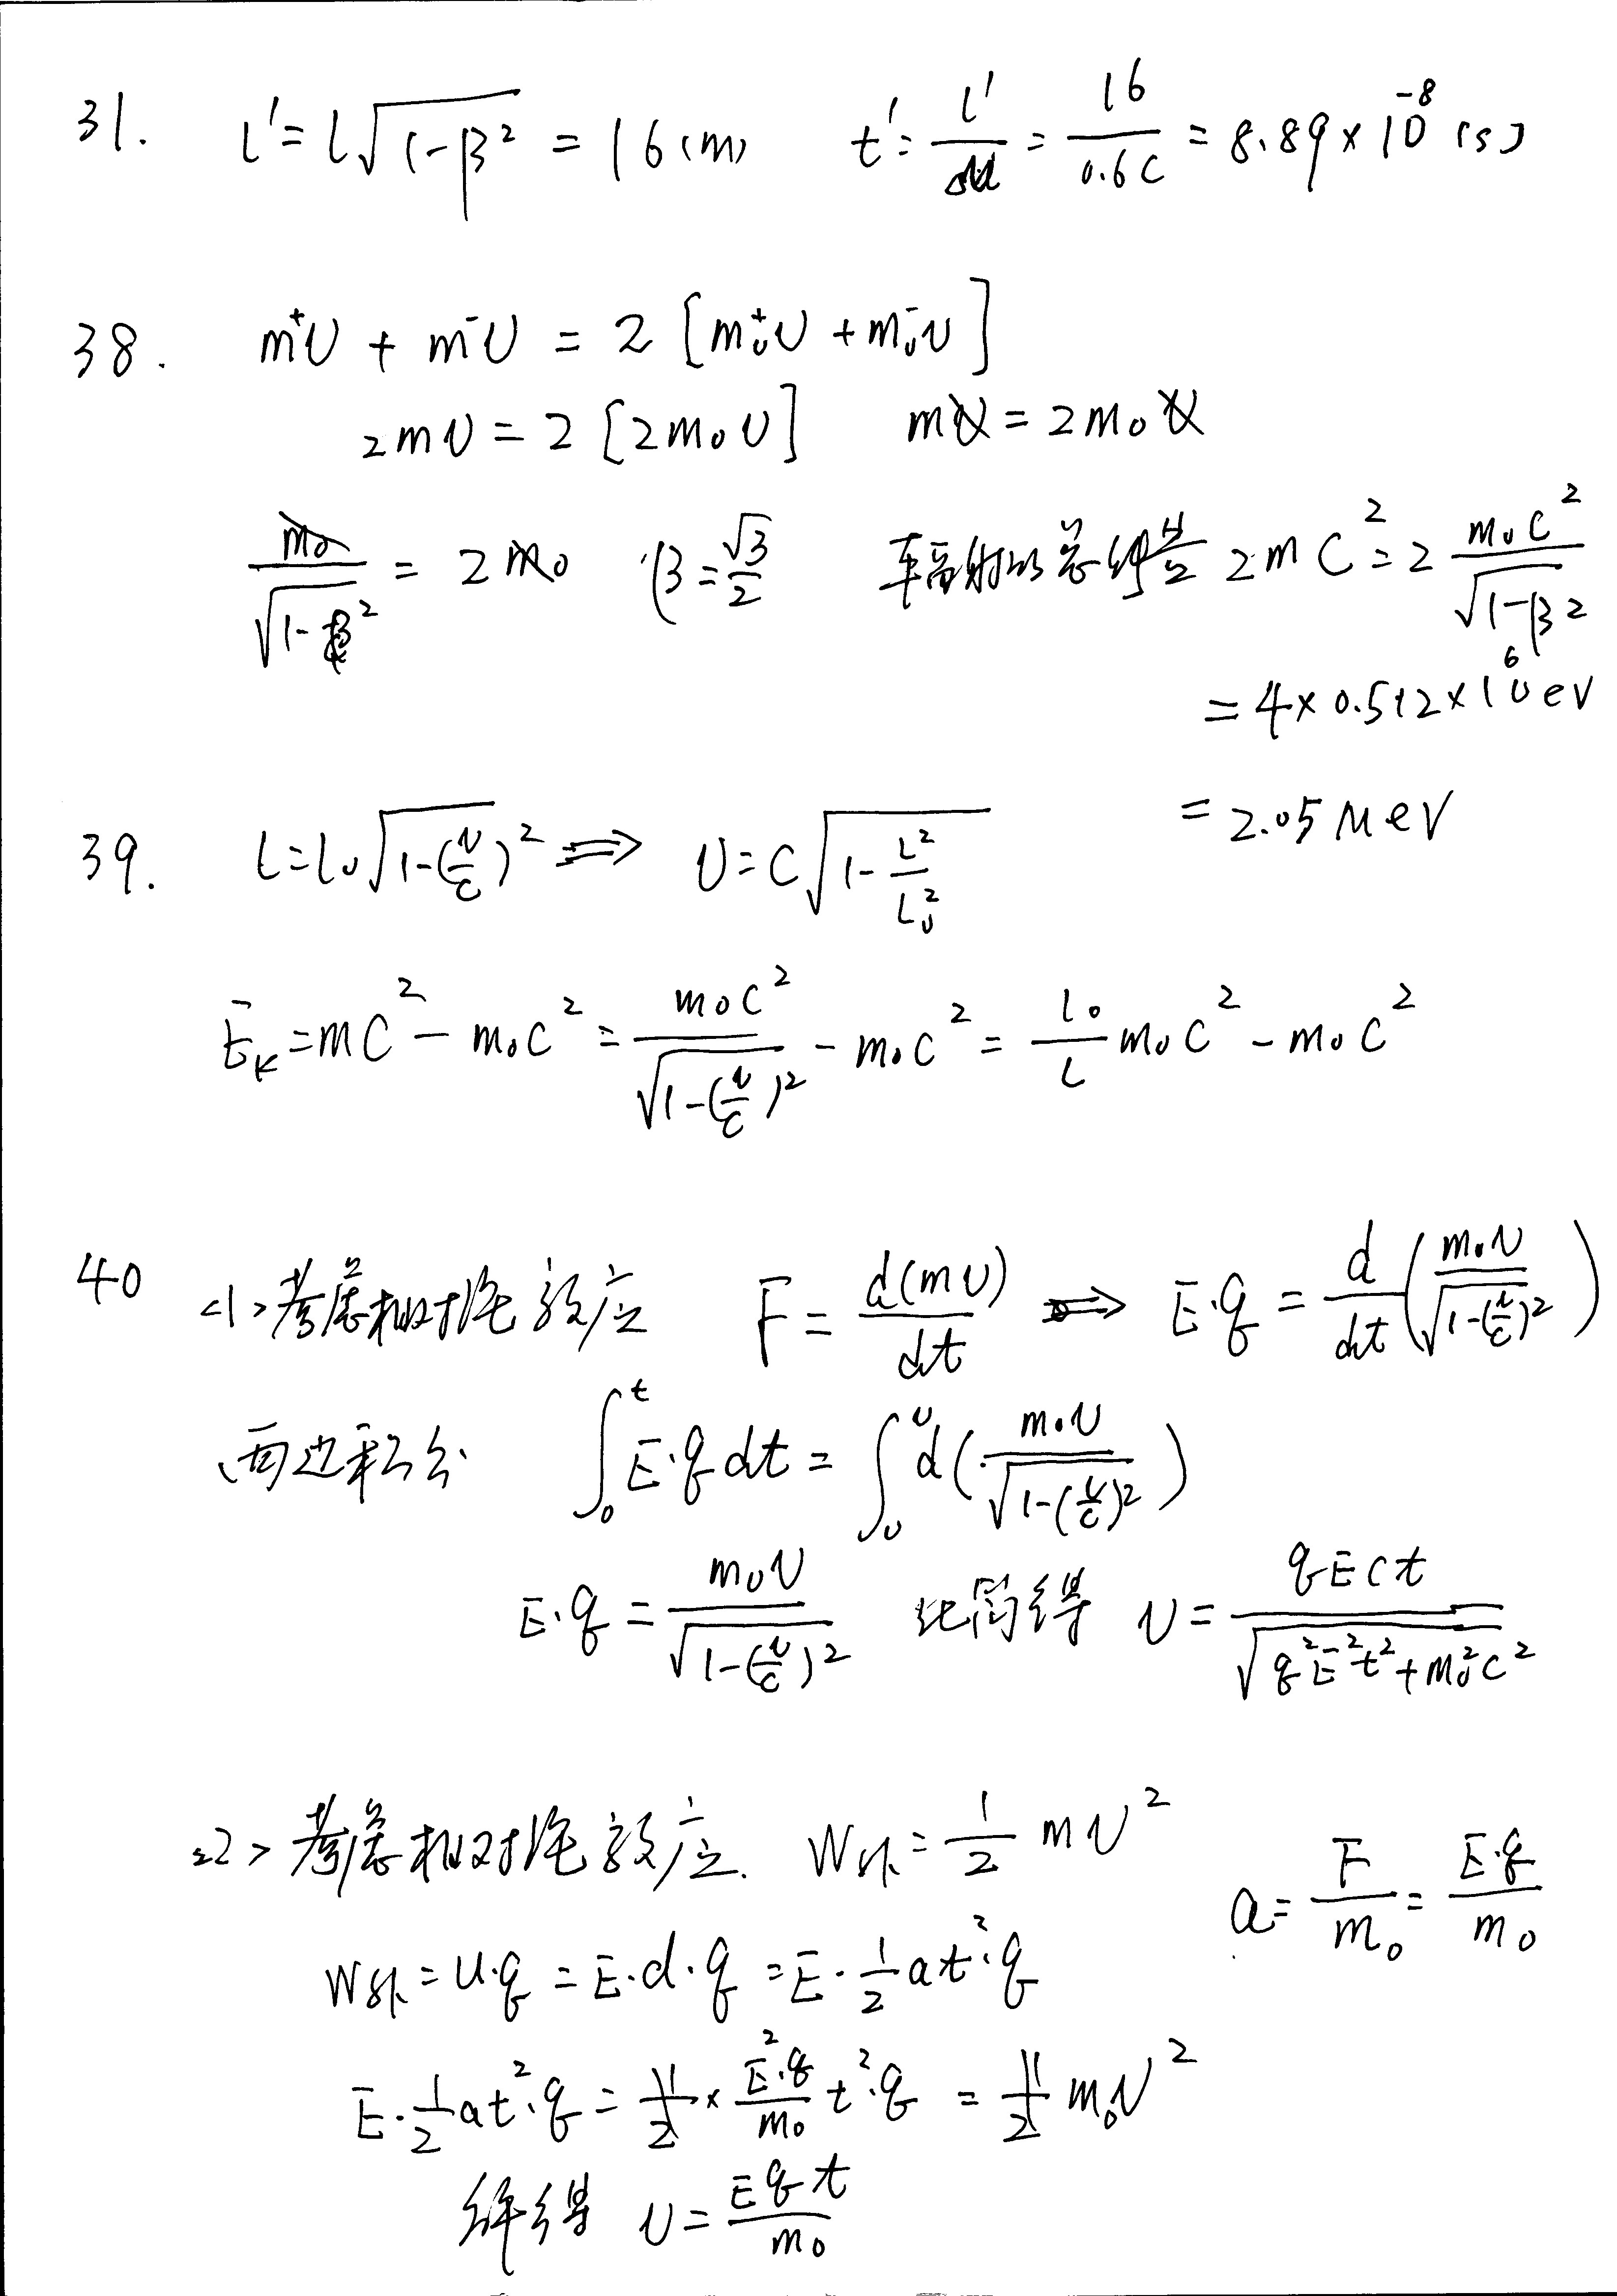 31. l'=l√(1-β²) = 16(m) t'= l'/u = 16/0.6C = 8.89×10⁻⁸(s)
38. m⁺υ + m⁻υ = 2[m₀⁺υ + m₀⁻υ]
2mυ = 2[2m₀υ] mυ = 2m₀υ
m₀/√(1-β²) = 2m₀ β = √3/2 辐射的总能量 2mC² = 2 m₀C²/√(1-β²)
= 4×0.512×10⁶eV
= 2.05MeV
39. l = l₀√(1-(υ/c)²) ⟹ υ = C√(1-L²/L₀²)
Eₖ = mC² - m₀C² = m₀C²/√(1-(υ/c)²) - m₀C² = l₀/l m₀C² - m₀C²
40 <1>考虑相对论效应 F = d(mυ)/dt ⟹ E·q = d/dt(m₀υ/√(1-(υ/c)²))
两边积分 ∫₀ᵗ E·q dt = ∫₀^υ d(m₀υ/√(1-(υ/c)²))
E·q = m₀υ/√(1-(υ/c)²) 化简得 υ = qECt/√(q²E²t²+m₀²C²)
<2>考虑相对论效应. W外 = 1/2 mυ²
a = F/m₀ = E·q/m₀
W外 = U·q = E·d·q = E·1/2at²·q
E·1/2at²·q = 1/2×E²·q/m₀ t²·q = 1/2 m₀υ²
解得 υ = Eqt/m₀